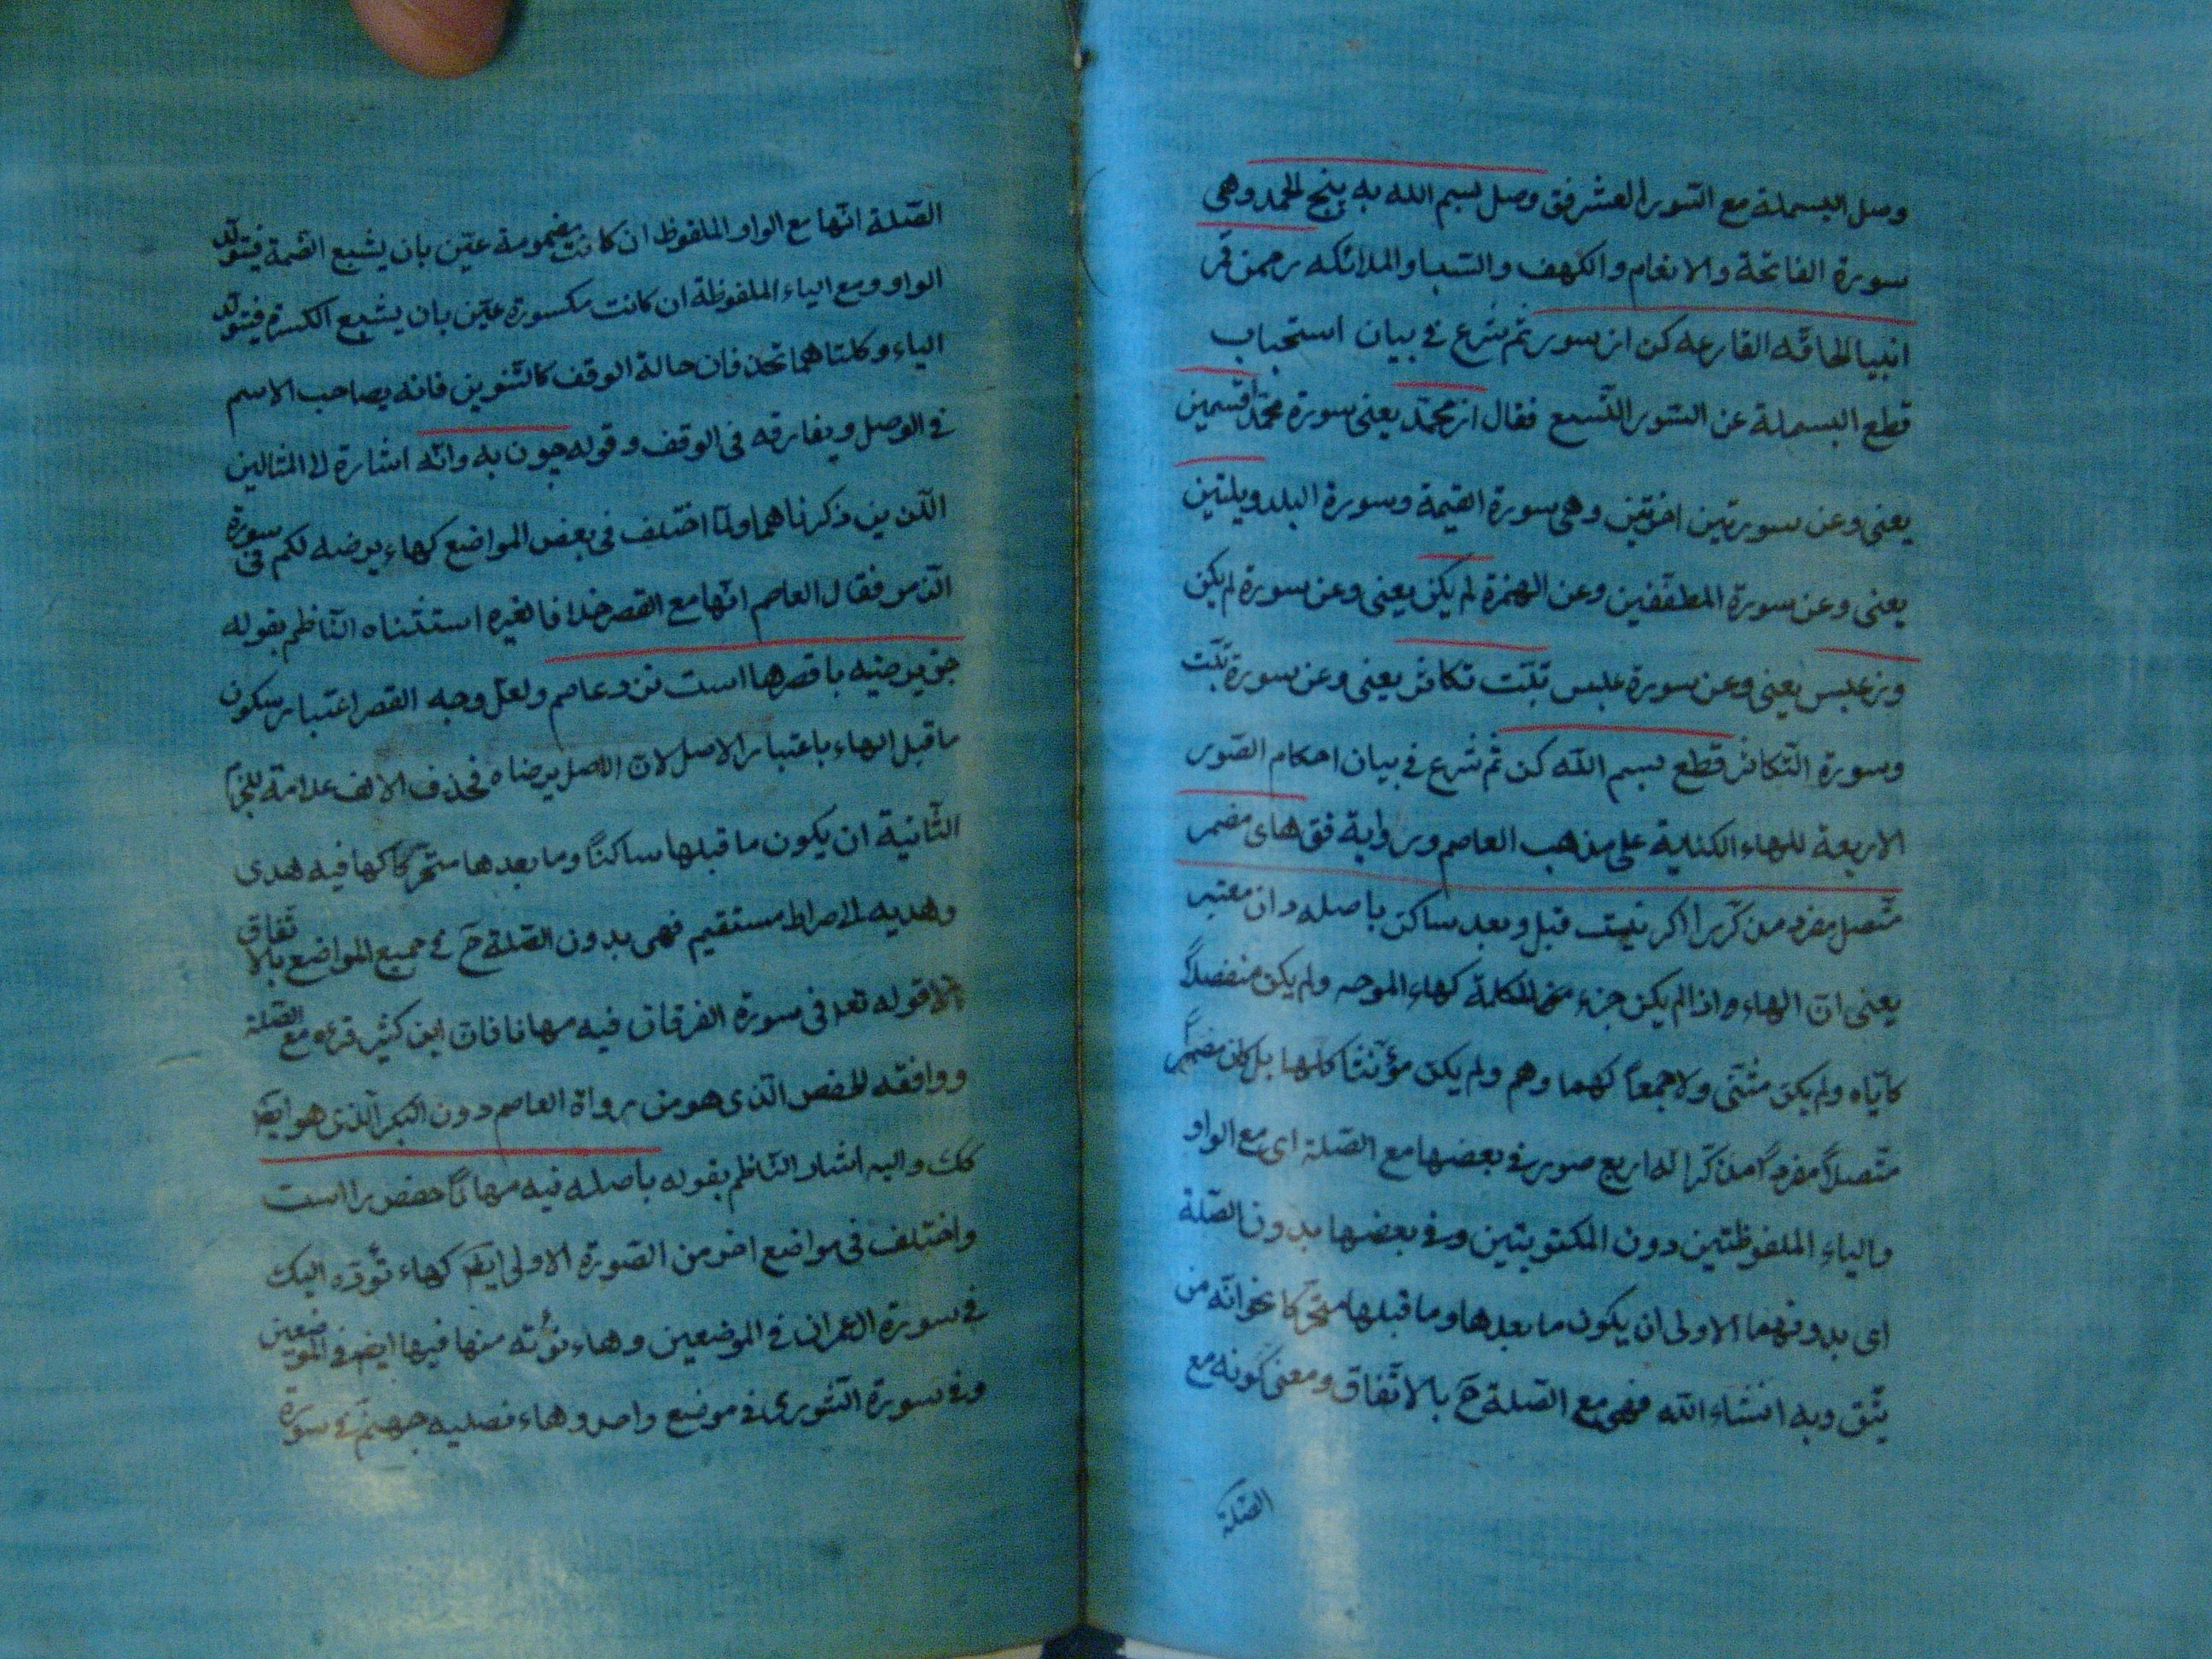 وصل البسملة مع السور العشر فق وصل بسم الله به پنج الحمد وهى
سورة الفاتحة والانعام والكهف والسبا والملائكه رحمن قمر
انبيا الحاقّه القارعه كن از سور ثم شرع فى بيان استحباب
قطع البسملة عن السور التّسع فقال از محمّد يعنى سورة محمّد اقسمين
يعنى وعن سورتين اختين وهى سورة القيمة وسورة البلد ويلتين
يعنى وعن سورة المطفّفين وعن الهمزة لم يكن يعنى وعن سورة لم يكن
وز عبس يعنى وعن سورة عبس تبّت تكاثر يعنى وعن سورة تبّت
وسورة التّكاثر قطع بسم الله كن ثم شرع فى بيان احكام الصّور
الاربعة للهاء الكناية على مذهب العاصم ورواية فق هاى مضمر
متّصل مفرد مذكّر را اكر نيست قبل وبعد ساكن باصله دان معتبر
يعنى انّ الهاء واذا لم يكن جزء من الكلمة كهاء الموجه ولم يكن منفصلاً
كايّاه ولم يكن مثنّى ولا جمعاً كهما وهم ولم يكن مؤنّثا كلها بل كان مضمراً
متّصلاً مفرداً مذكّرا له اربع صور فى بعضها مع الصّلة اى مع الواو
والياء الملفوظتين دون المكتوبتين وفى بعضها بدون الصّلة
اى بدونهما الاولى ان يكون ما بعدها وما قبلها متحرّكا نحو انّه من
يتّق وبه انشاء الله فهى مع الصّلة ح بالاتّفاق ومعنى كونه مع
الصّلة
الصّلة انّها مع الواو الملفوظ ان كانت مضمومة عين بان يشبع الضّمة فيتولّد
الواو ومع الياء الملفوظة ان كانت مكسورة عين بان يشبع الكسرة فيتولّد
الياء وكلتاهما تحذفان حالة الوقف كالتّنوين فانه يصاحب الاسم
فى الوصل ويفارقه فى الوقف وقوله چون به وانّه اشارة الى المثالين
الّذين ذكرناهما ولمّا اختلف فى بعض المواضع كهاء يرضه لكم فى سورة
الزمر فقال العاصم انّها مع القصر خلافا لغيره استثناه النّاظم بقوله
جز يرضه با قصرها است نزد عاصم ولعلّ وجه القصر اعتبار سكون
ما قبل الهاء باعتبار الاصل لان الاصل يرضاه فحذف الالف علامة للجزم
الثّانية ان يكون ما قبلها ساكنًا وما بعدها متحرّكا كها فيه هدى
وهديه الى صراط مستقيم فهى بدون الصّلة ح فى جميع المواضع بالاتّفاق
الّا قوله تعا فى سورة الفرقان فيه مهانا فان ابن كثير قرءه مع الصّلة
ووافقه الحفص الّذى هو من رواة العاصم دون البكر الّذى هو ايضا
كك واليه اشار النّاظم بقوله باصله فيه مهاناً حفص را است
واختلف فى مواضع اخر من الصّورة الاولى ايضا كهاء تؤده اليك
فى سورة ال عمران فى الموضعين وهاء نؤته منها فيها ايضا فى الموضعين
وفى سورة الشّورى فى موضع واحد وهاء نصليه جهنّم فى سورة